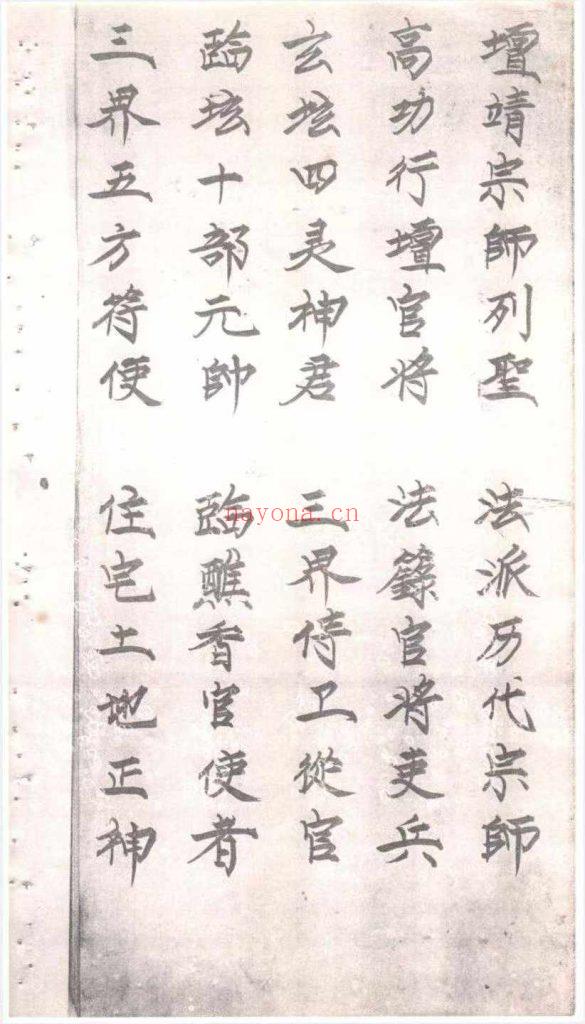 壇靖宗師列聖 法派历代宗師
高功行壇官将 法籙官将吏兵
玄坛四灵神君 三界侍卫從官
臨坛十部元帥 臨醮香官使者
三界五方符使 住宅土地正神
nayona.cn